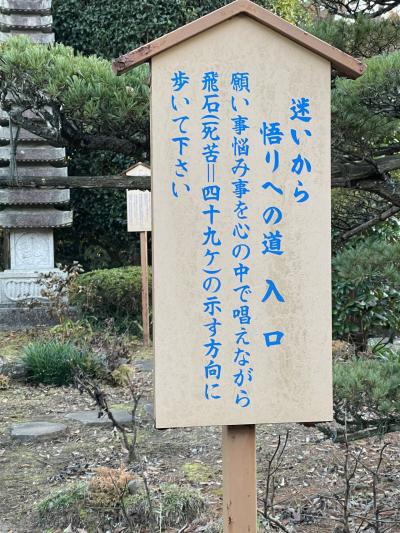 迷いから
悟りへの道 入口
願い事悩み事を心の中で唱えながら
飛石(死苦＝四十九ケ)の示す方向に
歩いて下さい